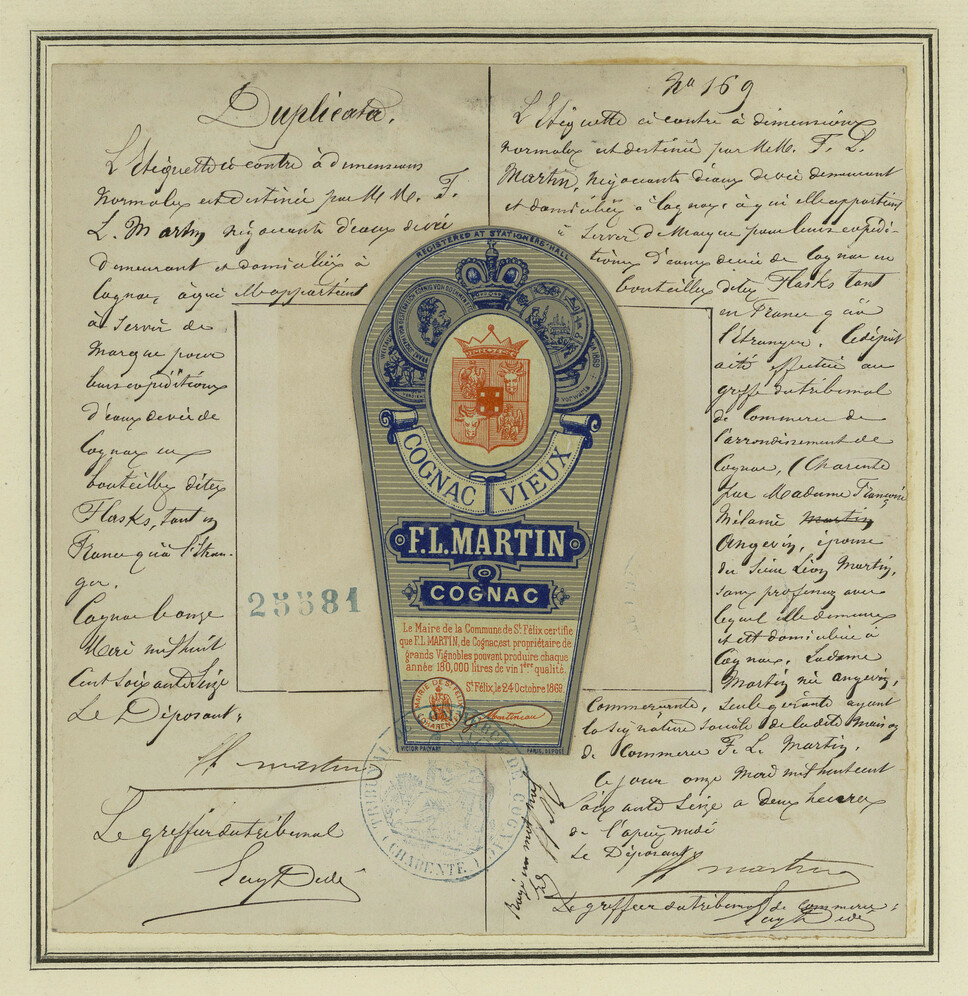 Duplicata.
L'Etiquette ci contre à dimensions
normales est destinée par M M. F.
L. Martin négociants d'eaux de vie
demeurant et domiciliés à
Cognac, à qui elle appartient
à servir de
marque pour
leurs expéditions
d'eaux de vie de
Cognac en
bouteilles dites
Flasks, tant en
France qu'à l'étran-
ger.
Cognac le onze
Mars mil huit
cent soixante Seize
Le Déposant,
martin
Le greffier du tribunal
No 169
L'Etiquette ci contre à dimensions
normales est destinée par M.M. F. L.
Martin, négociants d'eaux de vie demeurant
et domiciliés à Cognac, à qui elle appartient
à servir de Marque pour leurs expédi-
tions d'eaux de vie de Cognac en
bouteilles dites Flasks tant
en France qu'à
l'étranger. Le dépôt
a été effectué au
greffe du tribunal
de Commerce de
l'arrondissement de
Cognac, (Charente
par Madame Françoise
Mélanie Martin
Angevin, épouse
du Sieur Léon Martin,
sans profession avec
lequel elle demeure
et est domiciliée à
Cognac. La dame
Martin née angevin,
Commerçante, seule gérante ayant
la signature sociale de la dite Maison
de Commerce F. L. Martin.
Ce jour onze Mars mil huit cent
soixante Seize à deux heures
de l'après midi
Le Déposant
martin
Le greffier du tribunal de commerce:
Rayé un mot nul
REGISTERED AT STATIONERS-HALL
1869
COGNAC VIEUX
F.L.MARTIN
COGNAC
25581
Le Maire de la Commune de St Félix certifie
que F.L MARTIN, de Cognac, est propriétaire de
grands Vignobles pouvant produire chaque
année 180,000 litres de vin 1ère qualité.
St Félix, le 24 Octobre 1869.
MAIRIE DE ST FELIX
(CHARENTE)
Martineau
VICTOR PALYART
PARIS, DEPOSÉ
TRIBUNAL DE COMMERCE DE COGNAC
(CHARENTE)